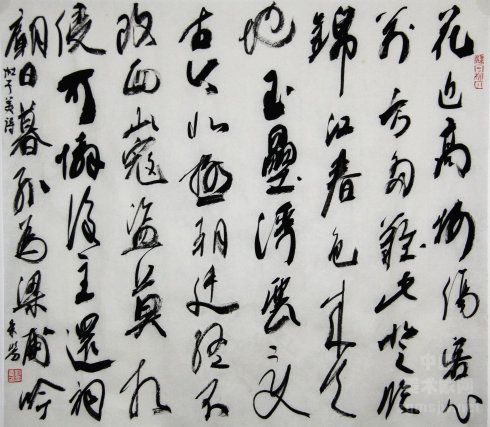 花近高楼傷客心
萬方多難此登臨
錦江春色来天
地玉壘浮雲变
古今北極朝廷終不
改西山寇盗莫相
侵可憐後主還祠
廟日暮聊为梁甫吟
杜子美詩